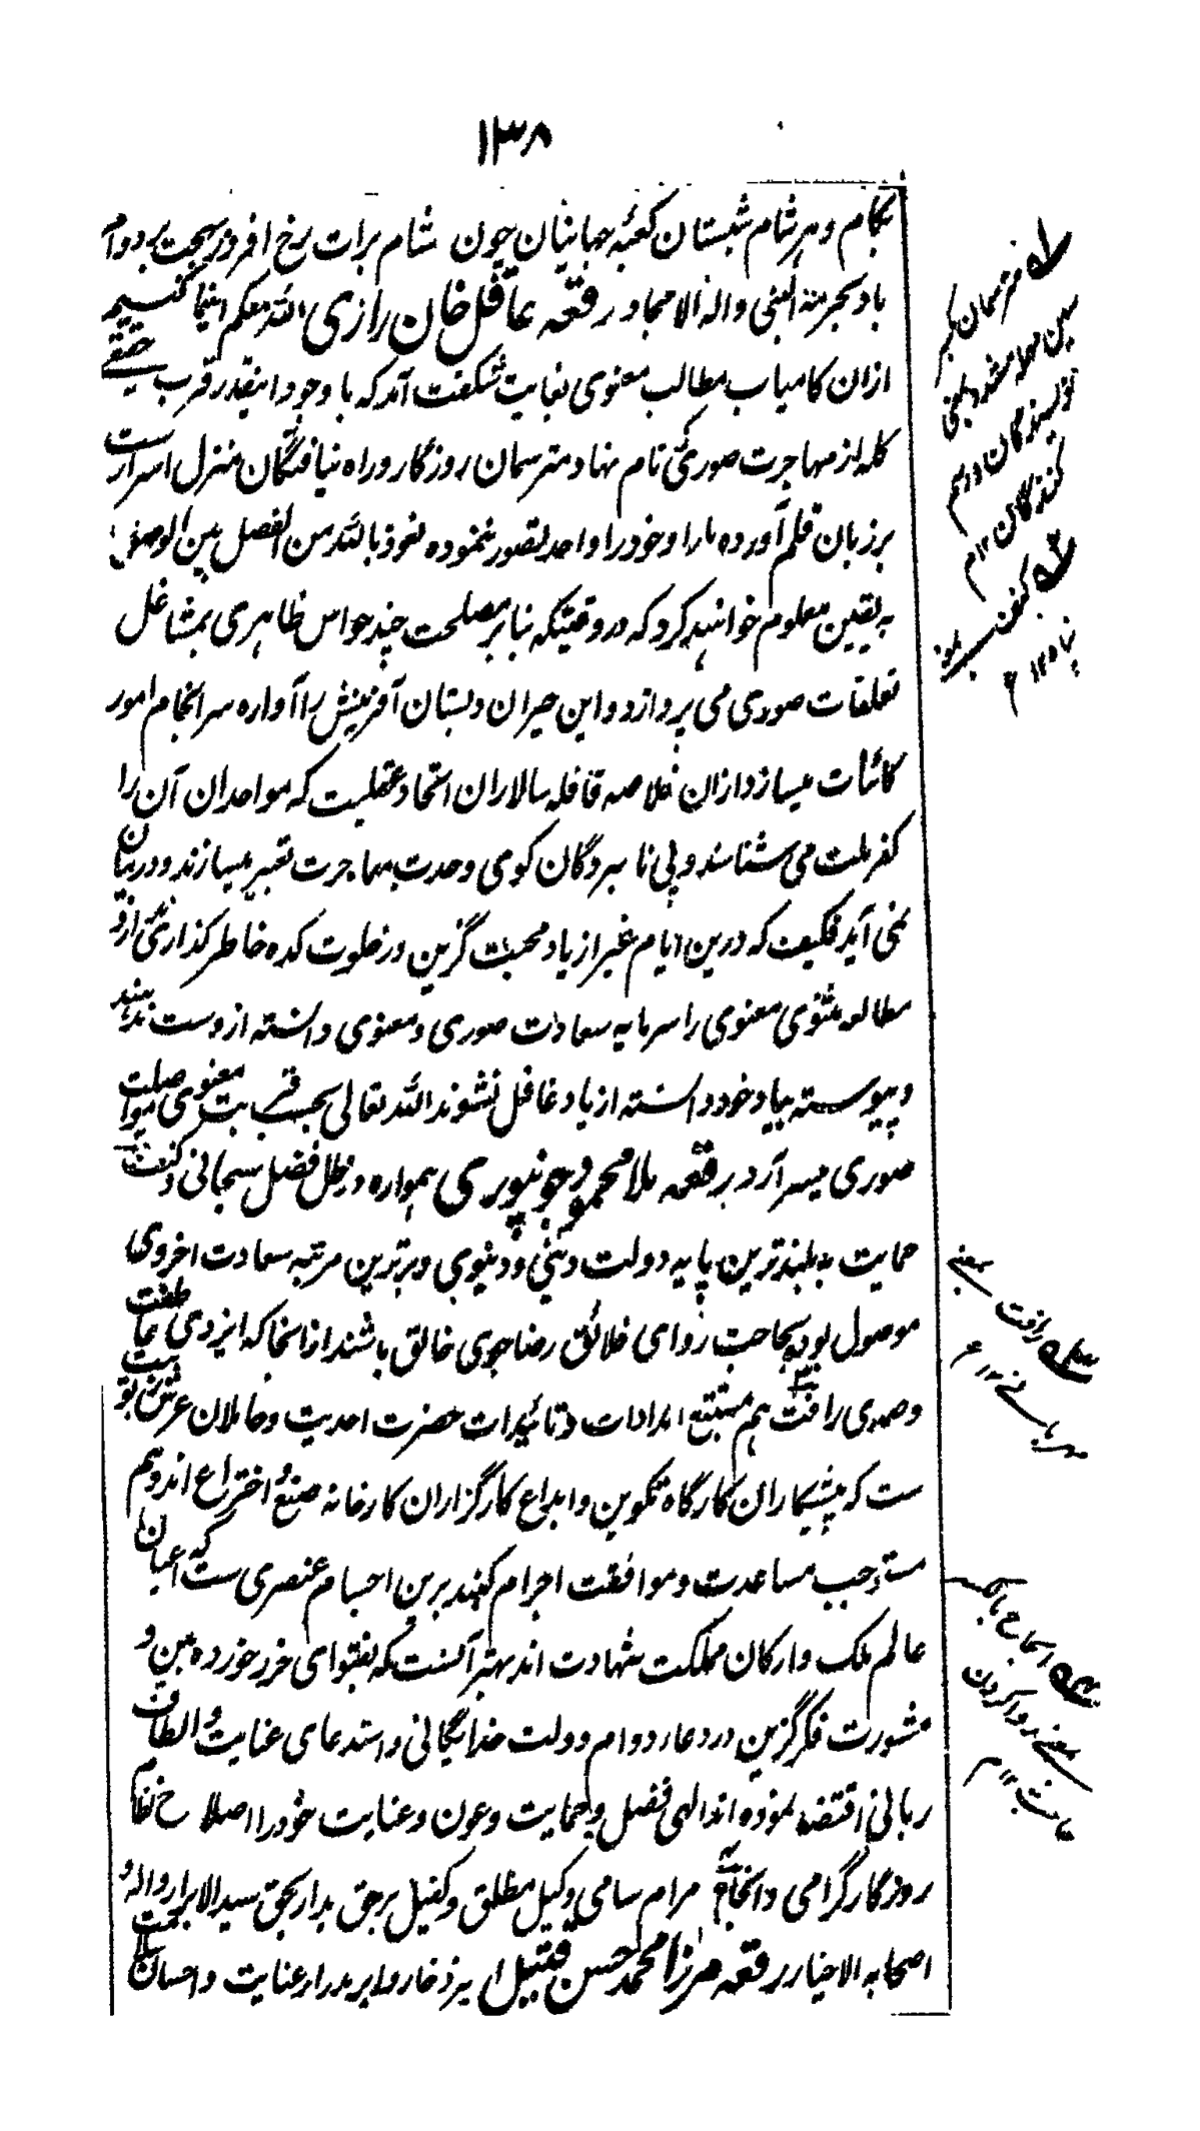 ۱۳۸
بکام و هر شام شبستان کعبهٔ جهانیان چون شام برات رخ افروز بهجت بر دوام
باد بحرمة النبی واله الامجاد رقعه عاقل خان رازی الله معکم اینما کنتم
ازان کامیاب مطالب معنوی بغایت شگفت آمد که با وجود اینقدر قرب حقیقی
کله از مهاجرت صوری نام نهاد مترسمان روزگار و راه نیافتگان منزل اسرار ست
بر زبان قلم آورده ما را و خود را واحد تصور ننموده نعوذ بالله من الفصل بین الوصل
به یقین معلوم خواهند کرد که در وقتیکه بنا بر مصلحت چند حواس ظاهری بمشاغل
تعلقات صوری می پردازد و این حیران دبستان آفرینش را آواره سرانجام امور
کائنات میسازد ازان خلاصه قافله سالاران اتحاد عقلیست که مواحدان آن را
کفر ملت می شناسند و پی نا سپردگان کوی وحدت بمهاجرت تعبیر میسازند و در بیان
نمی آید فکیف که درین ایام غیر از یاد محبت گزین در خلوت کده خاطر گذاری ندارد
مطالعه مثنوی معنوی را سرمایه سعادت صوری و معنوی دانسته از دست ندهند
و پیوسته بیاد خود دانسته از یاد غافل نشوند الله تعالی بحسب قربت معنوی مواصلت
صوری میسر آرد رقعه ملا محمود جونپوری همواره در ظل فضل سبحانی و کنف
حمایت به بلندترین پایه دولت دینی و دنیوی و برترین مرتبه سعادت اخروی
موصول بوده بحاجت روای خلائق رضا جوی خالق باشند ازانجا که ایزدی عاطفت
و صمدی رافت هم مستتبع امدادات و تائیدات حضرت احدیت و حاملان عرش ربوبیت
ست که پیشکاران کارگاه تکوین و ابداع کارگزاران کارخانه صنع و اختراع اند و هم
مستوجب مساعدت و موافقت اجرام کهند برین اجسام عنصری ست که اعیان
عالم ملک و ارکان مملکت شهادت اند بهتر آنست که بفتوای خرد خورده بین و
مشورت فکر گزین در دعاء دوام دولت خدایگانی و استدعای عنایت و الطاف
ربانی اقتضا نموده اند الهی فضل و حمایت و عون و عنایت خود را اصلاح نظام
روزگار گرامی و انجاح مرام سامی وکیل مطلق و کفیل برحق بدار بحق سید الابرار واله و
اصحابه الاخیار رقعه مرزا محمد حسن قتیل ذخار و ابر مدرار عنایت و احسان سلامت
مترسمان
نویسندگان و رسم
کنندگان ۱۲ م
پناه ۱۲ م
رافت بمعنی
مهربانی ۱۲ م
انجاح بالکسر
بمعنی روا کردن
حاجت ۱۲ م